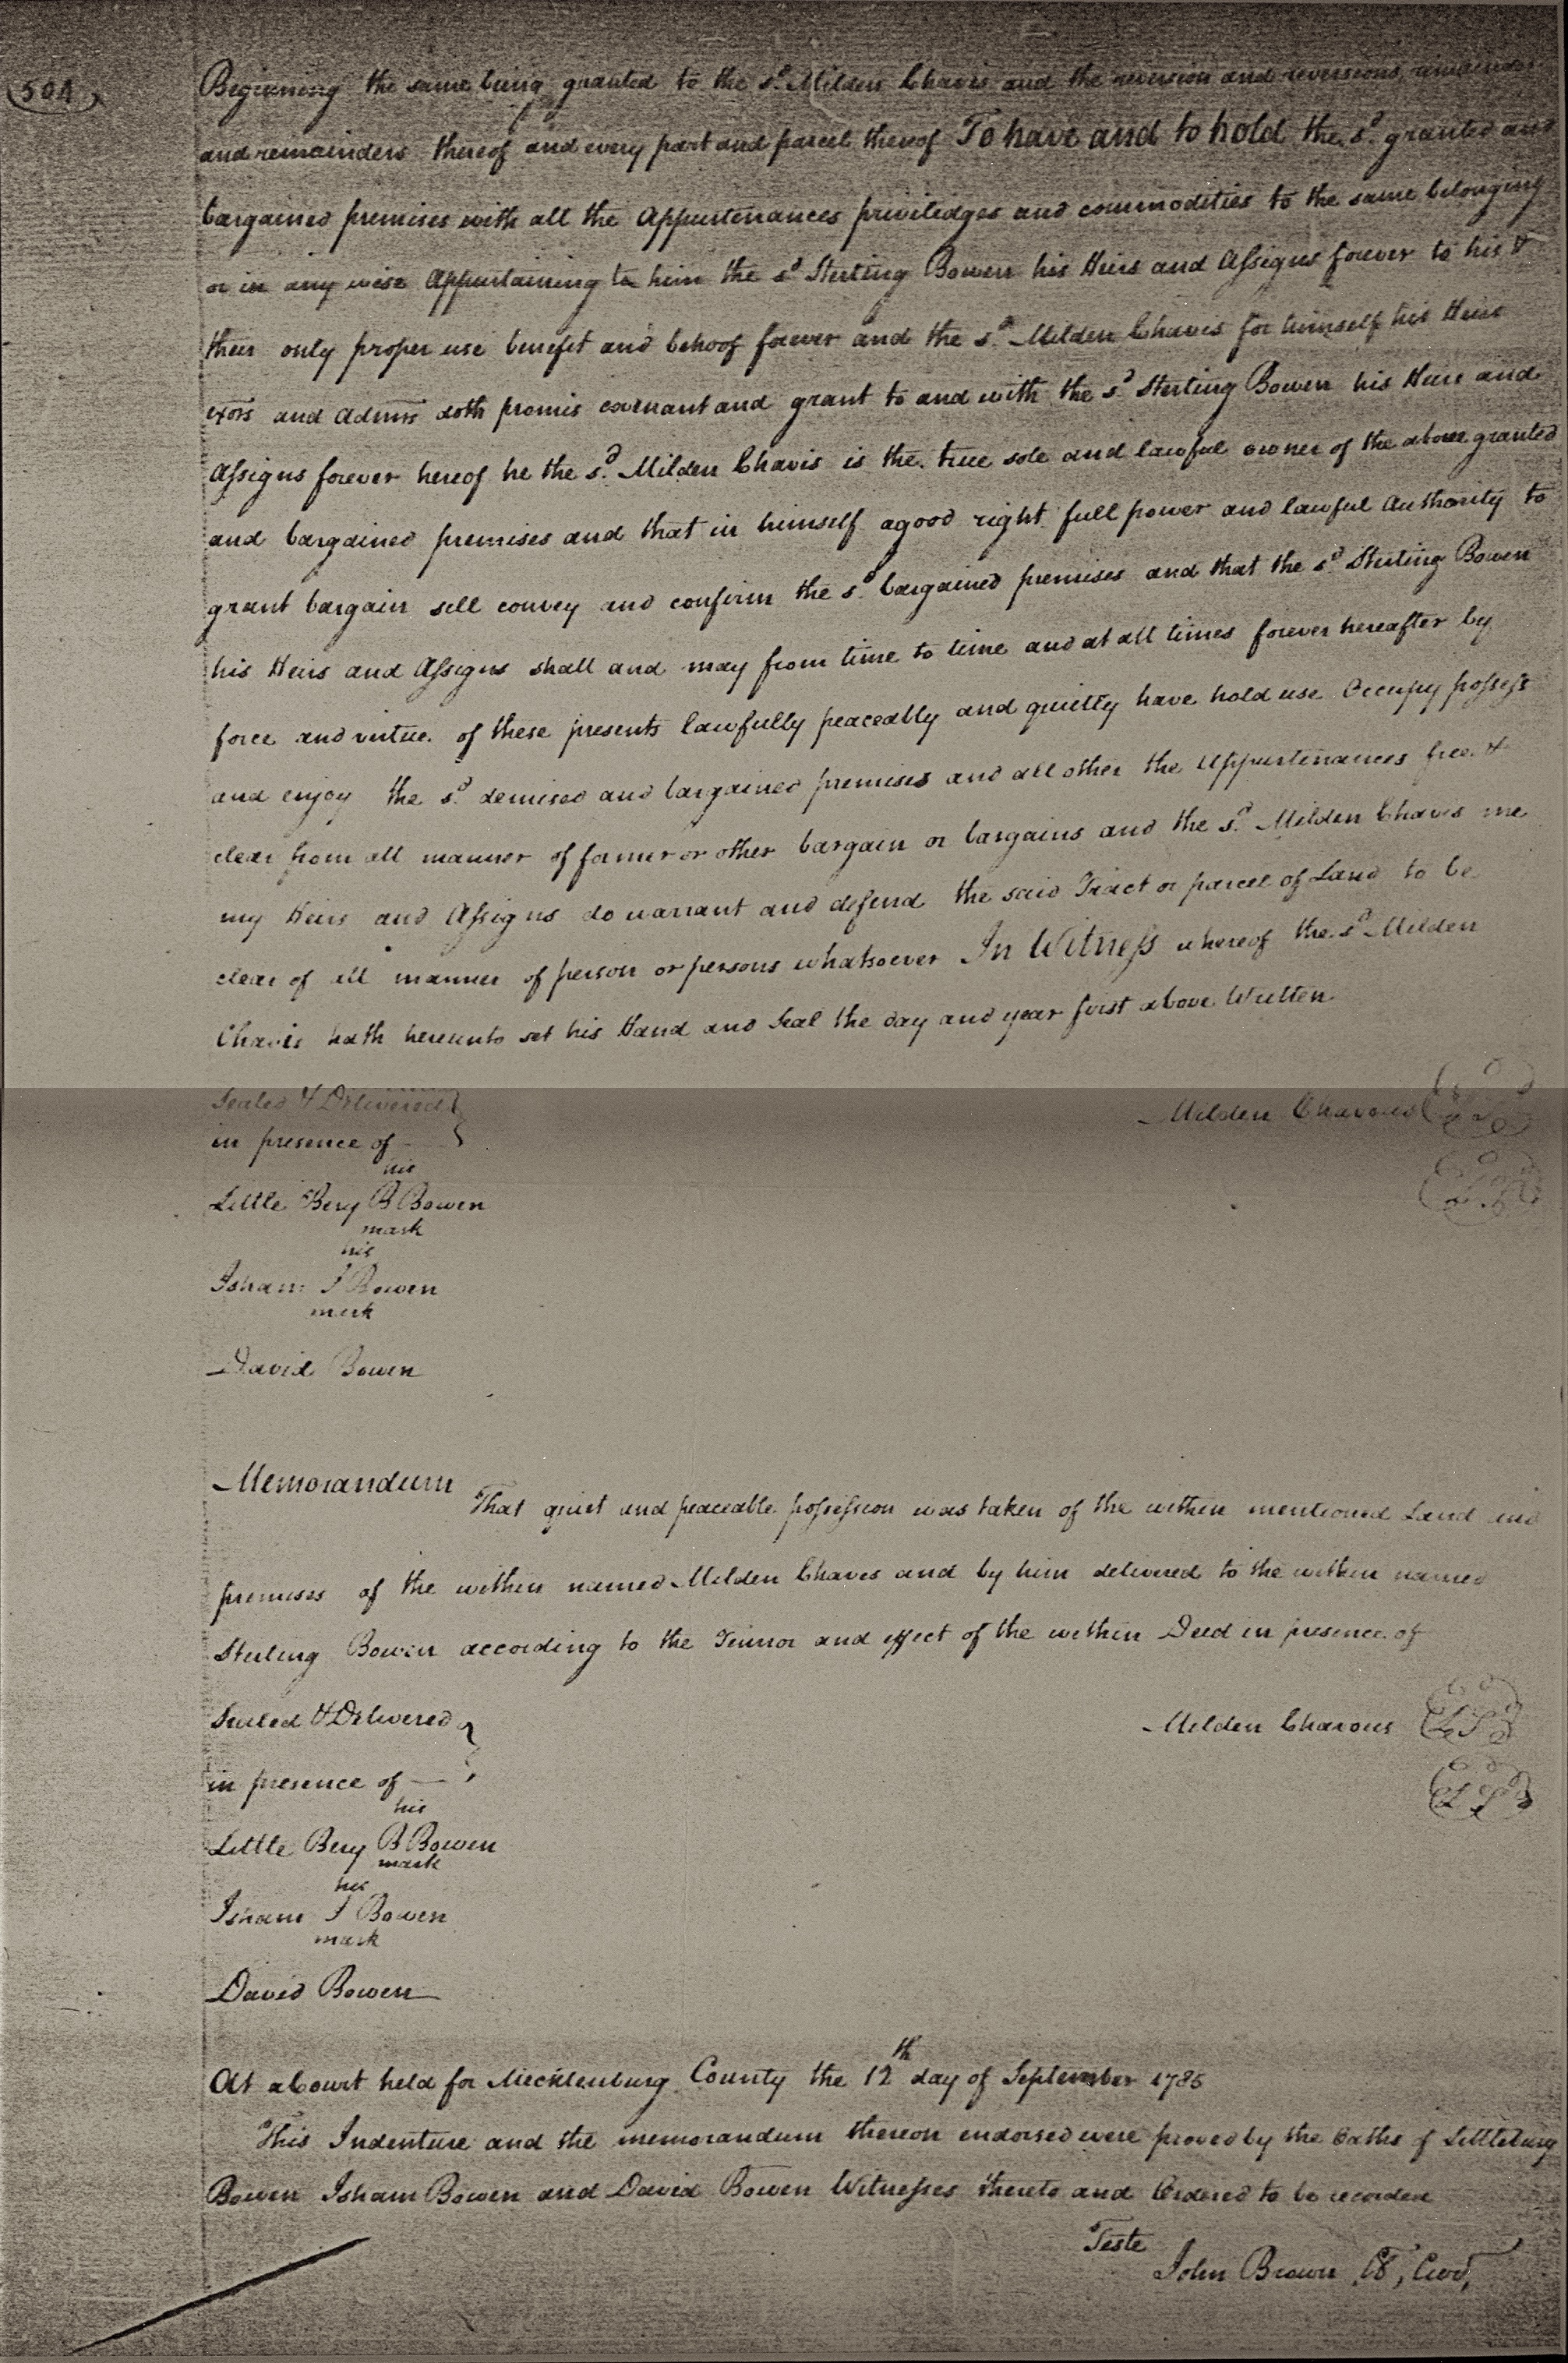 504
Beginning the same being granted to the sd. Milden Chavis and the reversion and reversions remainder
and remainders thereof and every part and parcel thereof To have and to hold the sd. granted and
bargained premises with all the Appurtenances priviledges and commodities to the same belonging
or in any wise Appurtaining to him the sd Sterling Bowen his Heirs and Assigns forever to his &
their only proper use benefit and behoof forever and the sd. Milden Chavis for himself his Heirs
exors and admrs doth promis covenant and grant to and with the sd Sterling Bowen his Heirs and
Assigns forever hereof he the sd. Milden Chavis is the true sole and lawful owner of the above granted
and bargained premises and that in himself a good right full power and lawful Authority to
grant bargain sell convey and confirm the sd. bargained premises and that the sd Sterling Bowen
his Heirs and Assigns shall and may from time to time and at all times forever hereafter by
force and virtue of these presents lawfully peaceably and quietly have hold use Occupy possess
and enjoy the sd. demised and bargained premises and all other the Appurtenances free &
clear from all manner of former or other bargain or bargains and the sd. Milden Chavis me
my Heirs and Assigns do warrant and defend the said Tract or parcel of Land to be
clear of all manner of person or persons whatsoever In Witness whereof the sd Milden
Chavis hath hereunto set his Hand and Seal the day and year first above Written
Sealed & Delivered
in presence of
Milden Chavous
his
Little Bery B Bowen
mark
his
Isham I Bowen
mark
David Bowen
Memorandum
That quiet and peaceable possession was taken of the within mentioned Land and
premises of the within named Milden Chaves and by him delivered to the within named
Sterling Bowen according to the Tennor and effect of the within Deed in presence of
Sealed & Delivered
in presence of
Milden Chavous LS
LS
his
Little Bery B Bowen
mark
his
Isham I Bowen
mark
David Bowen
At a Court held for Mecklenburg County the 12th day of September 1785
This Indenture and the memorandum thereon endorsed were proved by the Oaths of Littlebury
Bowen Isham Bowen and David Bowen Witnesses thereto and Ordered to be recorded
Teste
John Brown Cl, Cur,